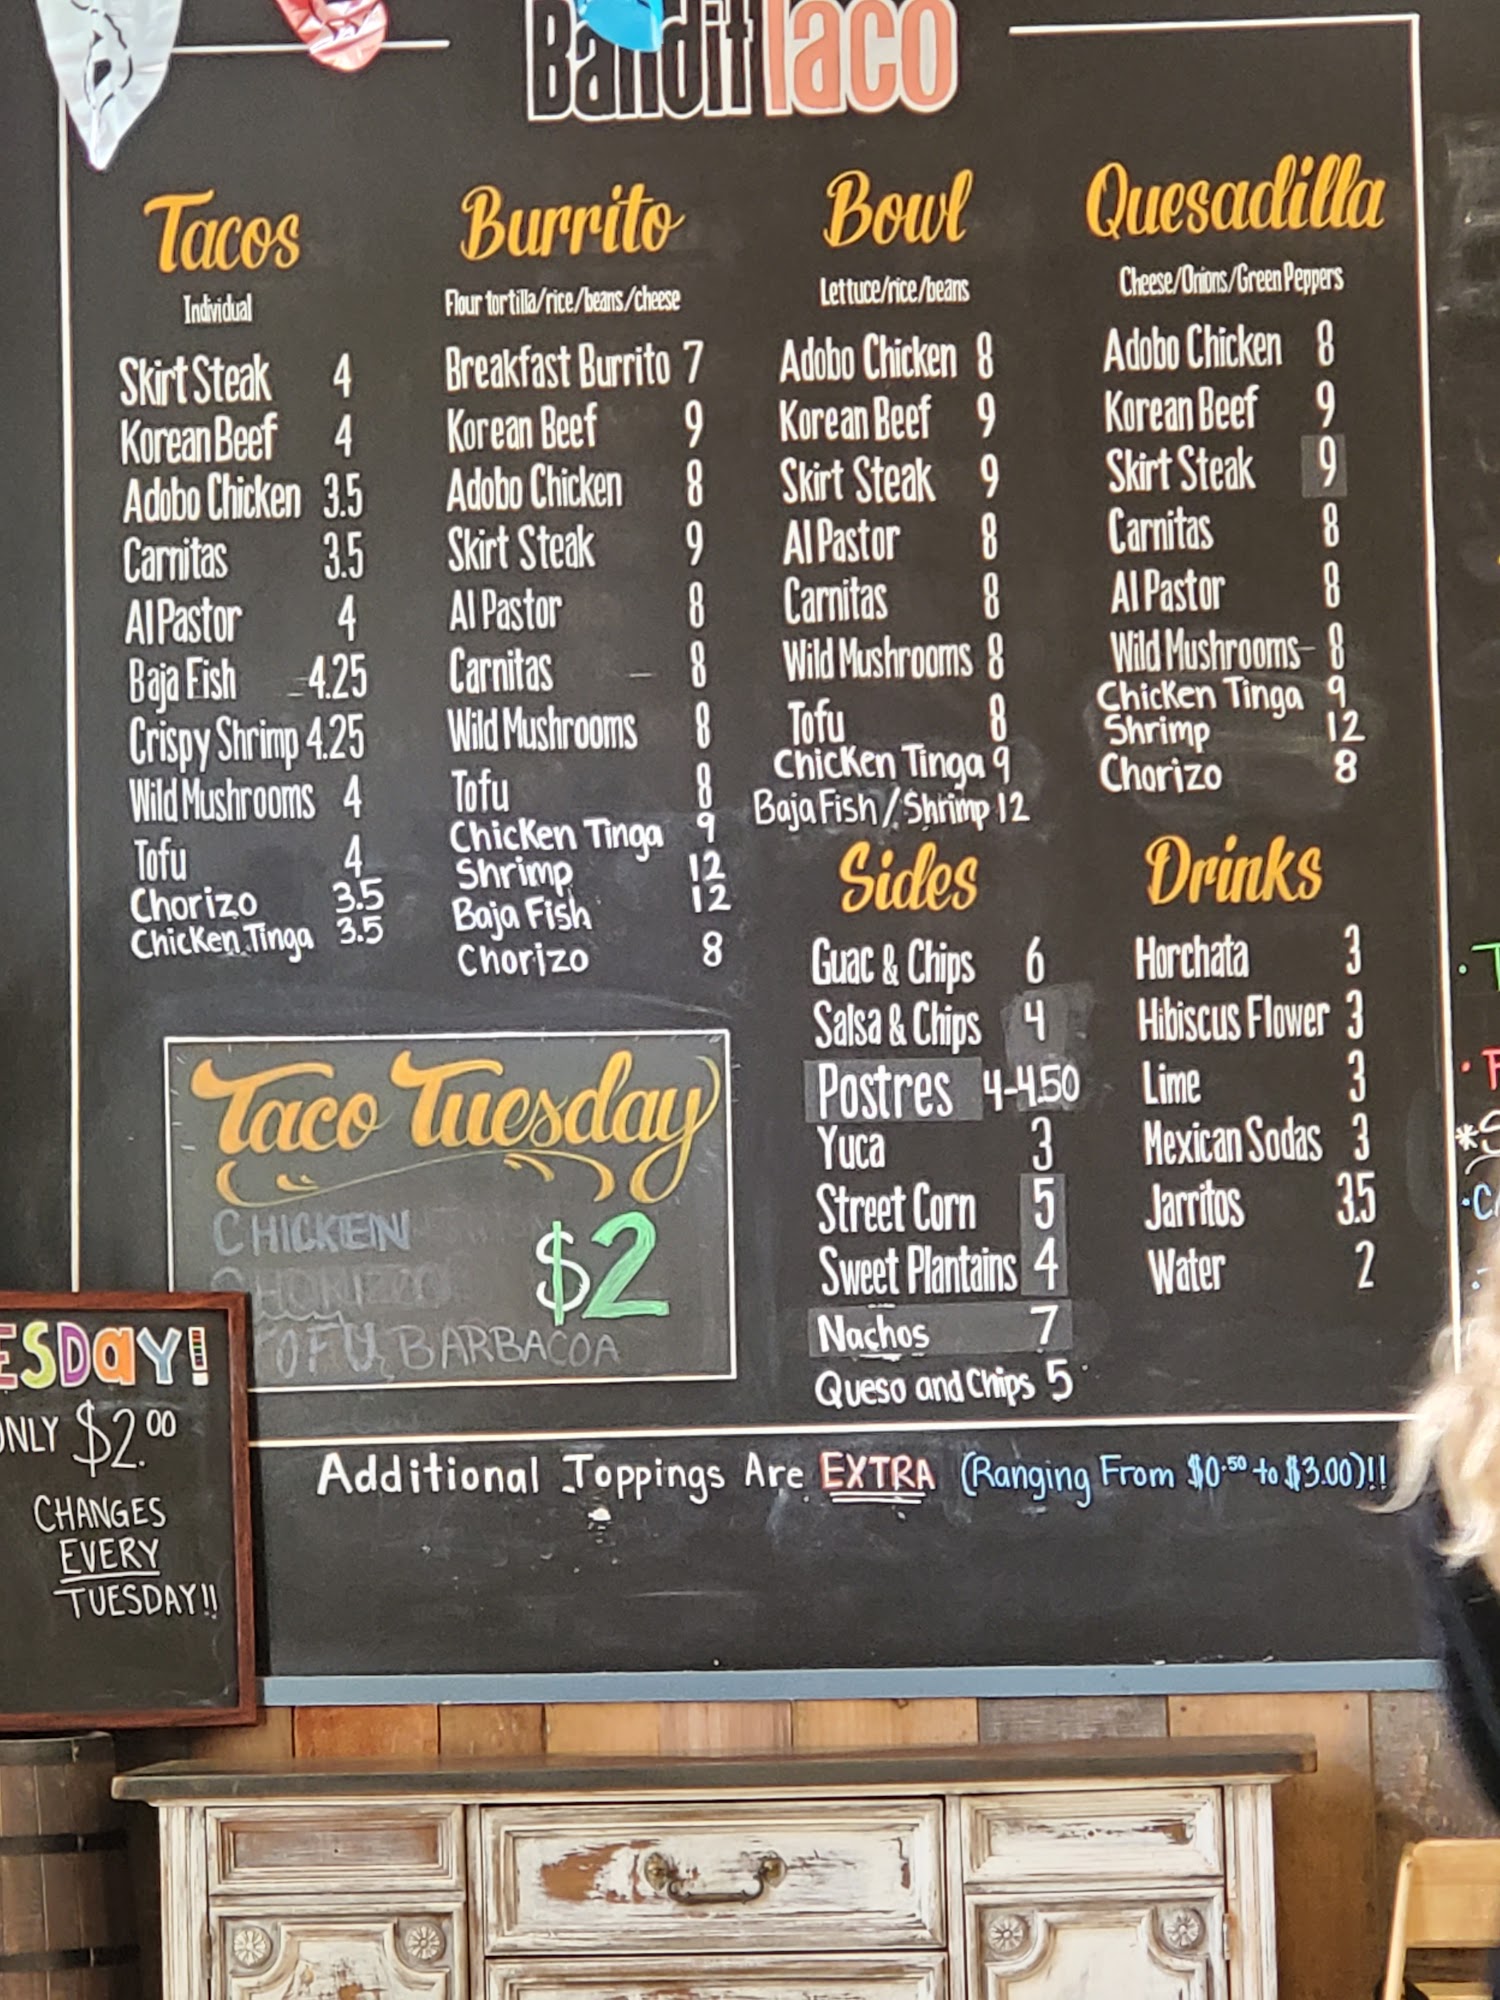 Bandit Taco
Tacos
Individual
Skirt Steak 4
Korean Beef 4
Adobo Chicken 3.5
Carnitas 3.5
Al Pastor 4
Baja Fish 4.25
Crispy Shrimp 4.25
Wild Mushrooms 4
Tofu 4
Chorizo 3.5
Chicken Tinga 3.5
Burrito
Flour tortilla/rice/beans/cheese
Breakfast Burrito 7
Korean Beef 9
Adobo Chicken 8
Skirt Steak 9
Al Pastor 8
Carnitas 8
Wild Mushrooms 8
Tofu 8
Chicken Tinga 9
Shrimp 12
Baja Fish 12
Chorizo 8
Bowl
Lettuce/rice/beans
Adobo Chicken 8
Korean Beef 9
Skirt Steak 9
Al Pastor 8
Carnitas 8
Wild Mushrooms 8
Tofu 8
Chicken Tinga 9
Baja Fish/Shrimp 12
Quesadilla
Cheese/Onions/Green Peppers
Adobo Chicken 8
Korean Beef 9
Skirt Steak 9
Carnitas 8
Al Pastor 8
Wild Mushrooms 8
Chicken Tinga 9
Shrimp 12
Chorizo 8
Sides
Guac & Chips 6
Salsa & Chips 4
Postres 4-4.50
Yuca 3
Street Corn 5
Sweet Plantains 4
Nachos 7
Queso and Chips 5
Drinks
Horchata 3
Hibiscus Flower 3
Lime 3
Mexican Sodas 3
Jarritos 3.5
Water 2
Taco Tuesday
CHICKEN
CHORIZO
$2
TOFU, BARBACOA
ESDAY!
ONLY $2.00
CHANGES
EVERY
TUESDAY!!
Additional Toppings Are EXTRA (Ranging From $0.50 to $3.00)!!